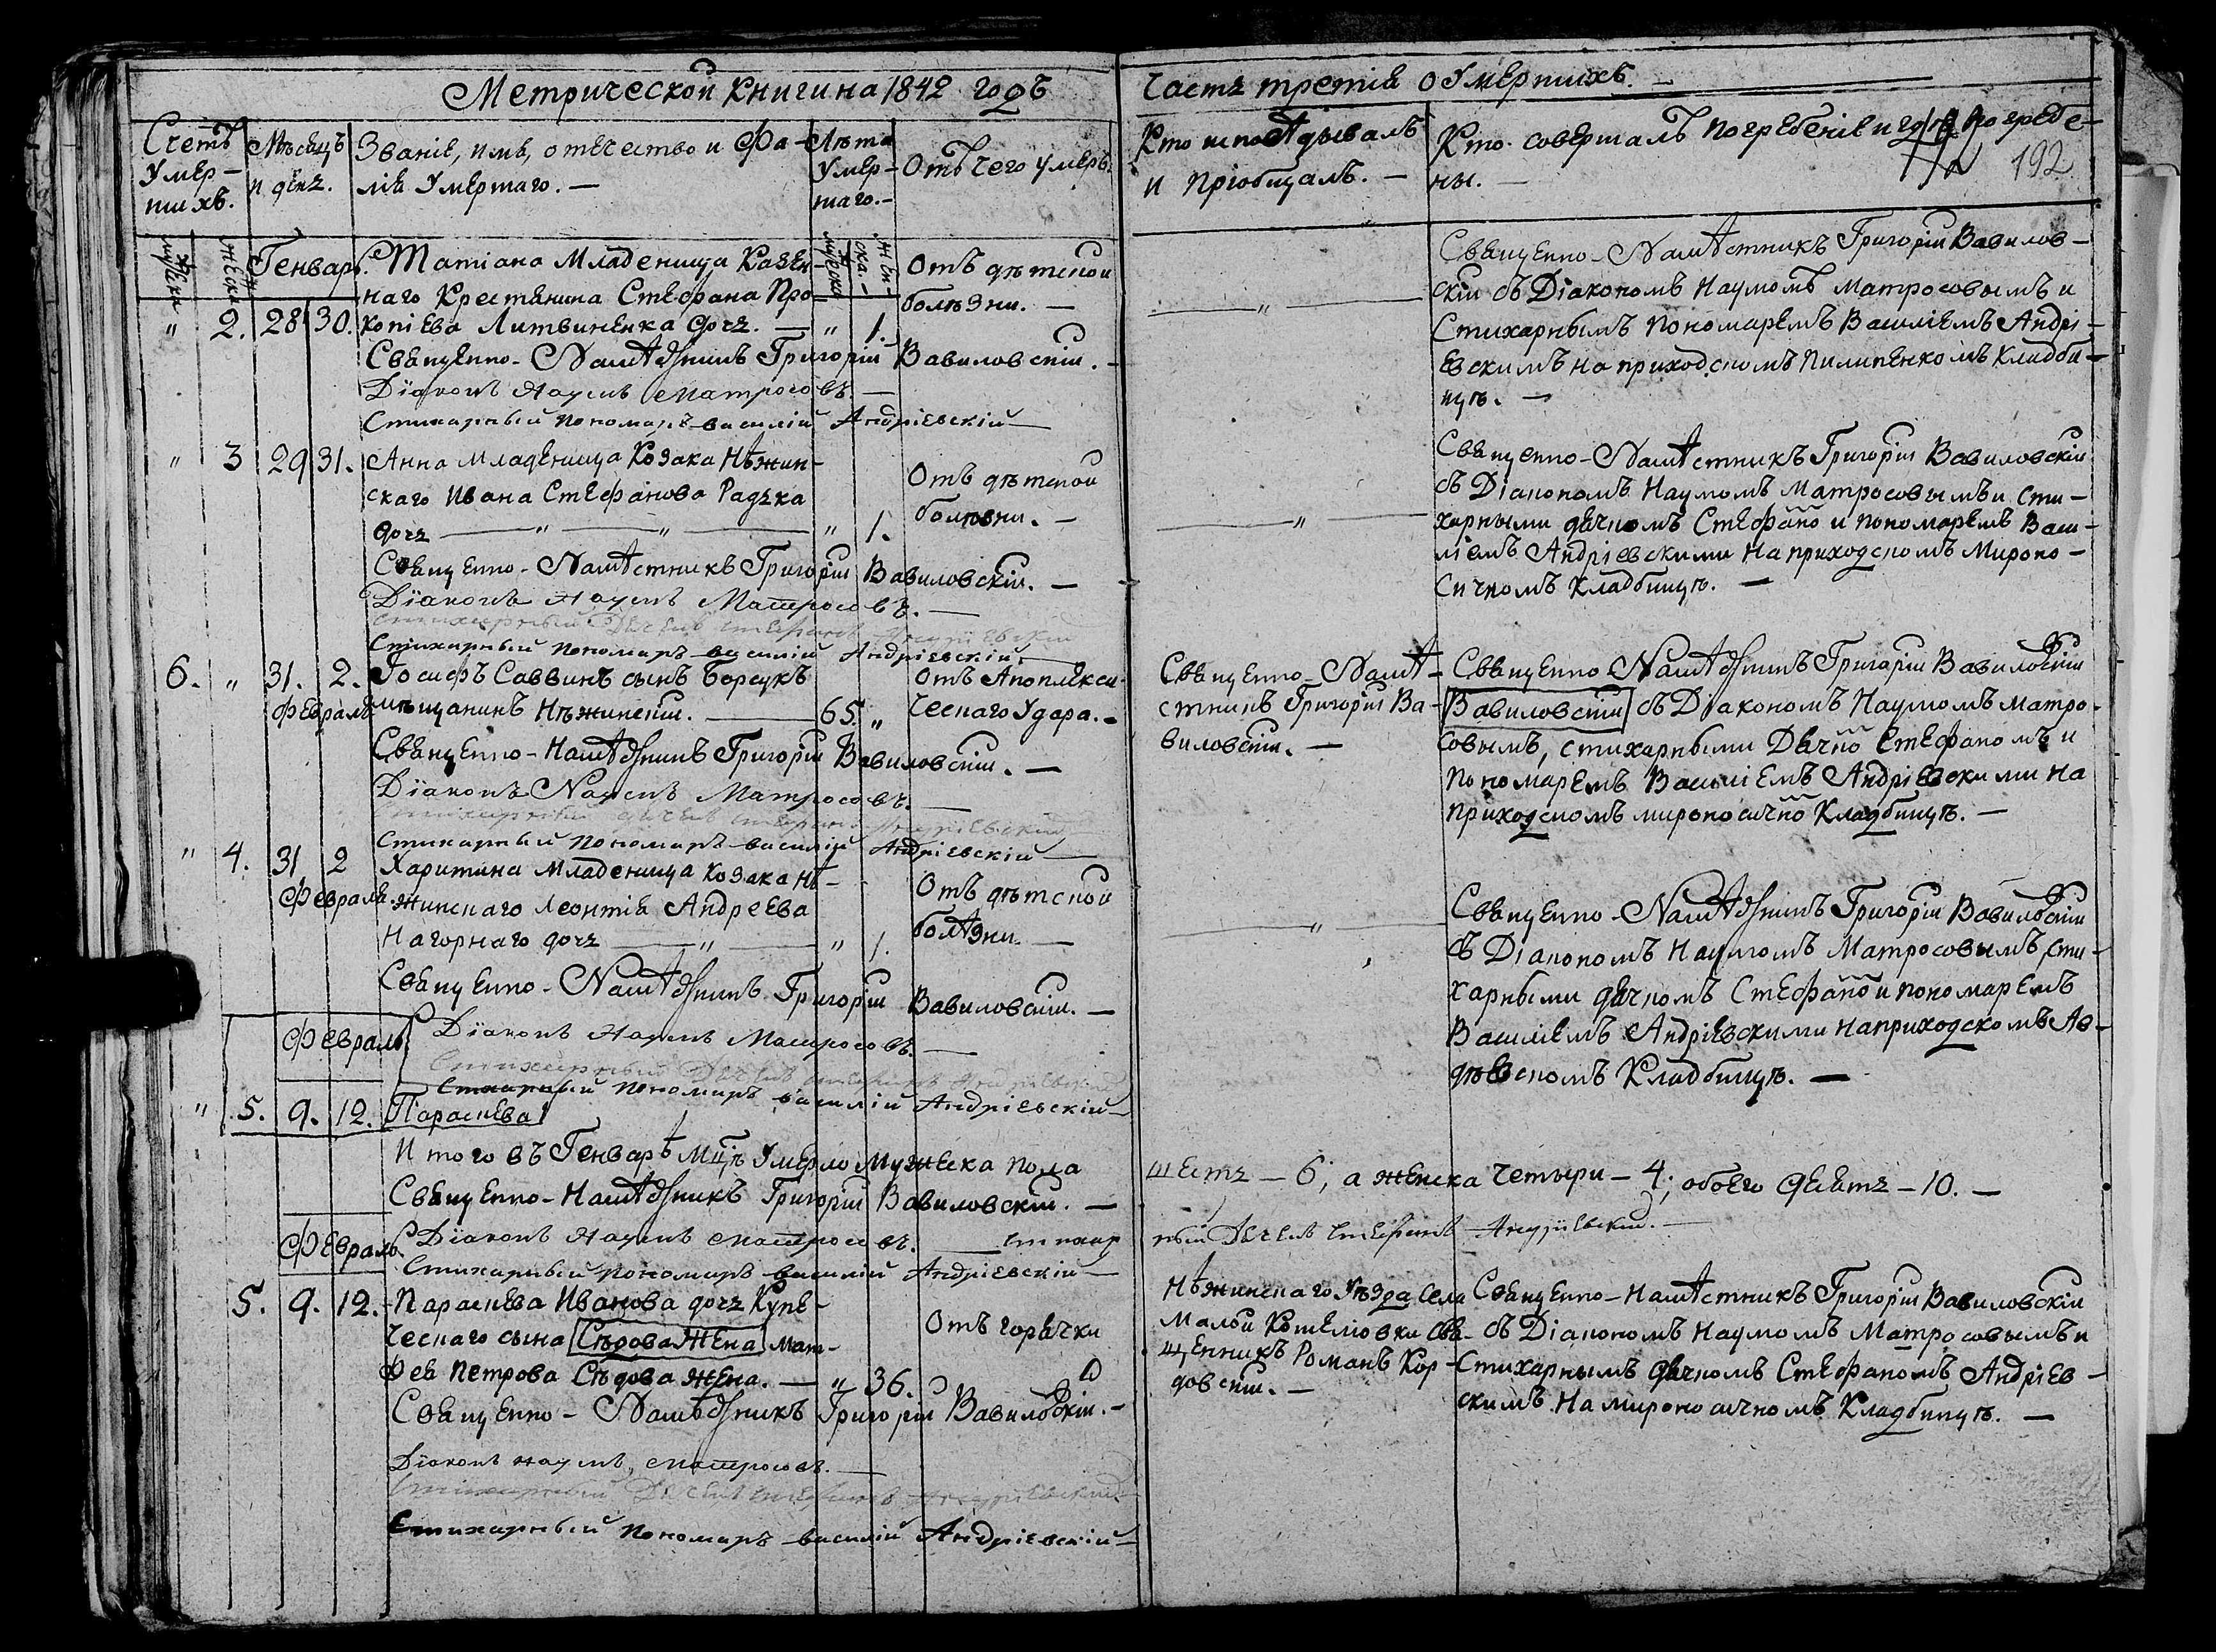 Метрической книги на 1842 годъ
Часть третія о Умершихъ. —
Счетъ Умер-шихъ.
Мѣсяцъ и день.
Званіе, имя, отчество и Фа-
милія Умершаго. —
Лѣта Умер-шаго. —
Отъ чего умеръ.
Кто исповѣдывалъ
и пріобщалъ. —
Кто совершалъ погребеніе и гдѣ погребе-
ны. —
192
мужеска
женска
Генварь.
мужеска
женска. —
Татіана Младеница Казен-
наго Крестянина Стефана Про-
" 2. 28 30. копіева Литвиненка дочь. — " 1.
Отъ дѣтской
болѣзни. —
Священно-Намѣстникъ Григорій Вавиловскій. —
Діаконъ Наумъ Матросовъ. —
Стихарный пономарь Василій Андріевскій —
— " —
Священно-Намѣстникъ Григорій Вавилов-
скій съ Діакономъ Наумомъ Матросовымъ и
Стихарнымъ пономаремъ Василіемъ Андрі-
евскимъ на приходскомъ Пилипенкомъ Кладби-
щѣ. —
" 3 29 31. Анна младеница Козака Нѣжин-
скаго Ивана Стефанова Радька
дочь — " — " — " 1.
Отъ дѣтской
болѣзни. —
Священно-Намѣстникъ Григорій Вавиловскій. —
Діаконъ Наумъ Матросовъ. —
Стихарный Дячекъ Стефанъ Андріевскій
Стихарный пономарь Василій Андріевскій. —
— " —
Священно-Намѣстникъ Григорій Вавиловскій
съ Діакономъ Наумомъ Матросовымъ и сти-
харными дячкомъ Стефано и пономаремъ Васи-
ліемъ Андріевскими на приходскомъ Мироно-
сичномъ Кладбищѣ. —
6. " 31. 2. Іосифъ Саввинъ сынъ Борсукъ
Февраля мѣщанинъ Нѣжинскій. — 65. "
Отъ Апоплекси-
ческаго Удара. —
Священно-Намѣстникъ Григорій Вавиловскій. —
Діаконъ Наумъ Матросовъ. —
Стихарный дячекъ Стефанъ Андріевскій
Стихарный пономарь Василій Андріевскій —
Священно-Намѣ-
стникъ Григорій Ва-
виловскій. —
Священно Намѣстникъ Григорій Вавиловскій
Вавиловскій съ Діакономъ Наумомъ Матро-
совымъ, стихарными Дячко Стефаномъ и
пономаремъ Василіемъ Андріевскими на
приходскомъ мироносично Кладбищѣ. —
" 4. 31 2 Харитина младеница козака Нѣ-
Февраля. жинскаго Леонтія Андреева
Нагорнаго дочь — " — " 1.
Отъ дѣтской
болѣзни. —
Священно-Намѣстникъ Григорій Вавиловскій. —
Діаконъ Наумъ Матросовъ. —
Стихарный Дячекъ Стефанъ Андріевскій
Стихарный пономарь Василій Андріевскій —
— " —
Священно-Намѣстникъ Григорій Вавиловскій
съ Діакономъ Наумомъ Матросовымъ, сти-
харными дячкомъ Стефано и пономаремъ
Василіемъ Андріевскими на приходскомъ Ав-
дѣевскомъ Кладбищѣ. —
Февраль
" 5. 9. 12. Параскева
Итого въ Генварѣ Мцѣ Умерло Мужеска пола
шесть — 6; а женска четыри — 4; обоего десять — 10. —
Священно-Намѣстникъ Григорій Вавиловскій. —
Діаконъ Наумъ Матросовъ. — Стихар
ный Дячекъ Стефанъ Андріевскій. —
Стихарный пономарь Василій Андріевскій —
Февраль.
5. 9. 12. Параскева Иванова дочь Купе-
ческаго сына Сѣрова Жена Мат-
фея Петрова Сѣдова жена. — " 36.
Отъ горячки
Священно-Намѣстникъ Григорій Вавиловскій. —
Діаконъ Наумъ Матросовъ. —
Стихарный Дячекъ Стефанъ Андріевскій
Стихарный пономарь Василій Андріевскій —
Нѣжинскаго Уѣзда Села
Малой Кошелювки Свя-
щенникъ Романъ Кор-
довскій. —
Священно-Намѣстникъ Григорій Вавиловскій
съ Діакономъ Наумомъ Матросовымъ и
Стихарнымъ дячкомъ Стефаномъ Андріев-
скимъ На мироносичномъ Кладбищѣ. —